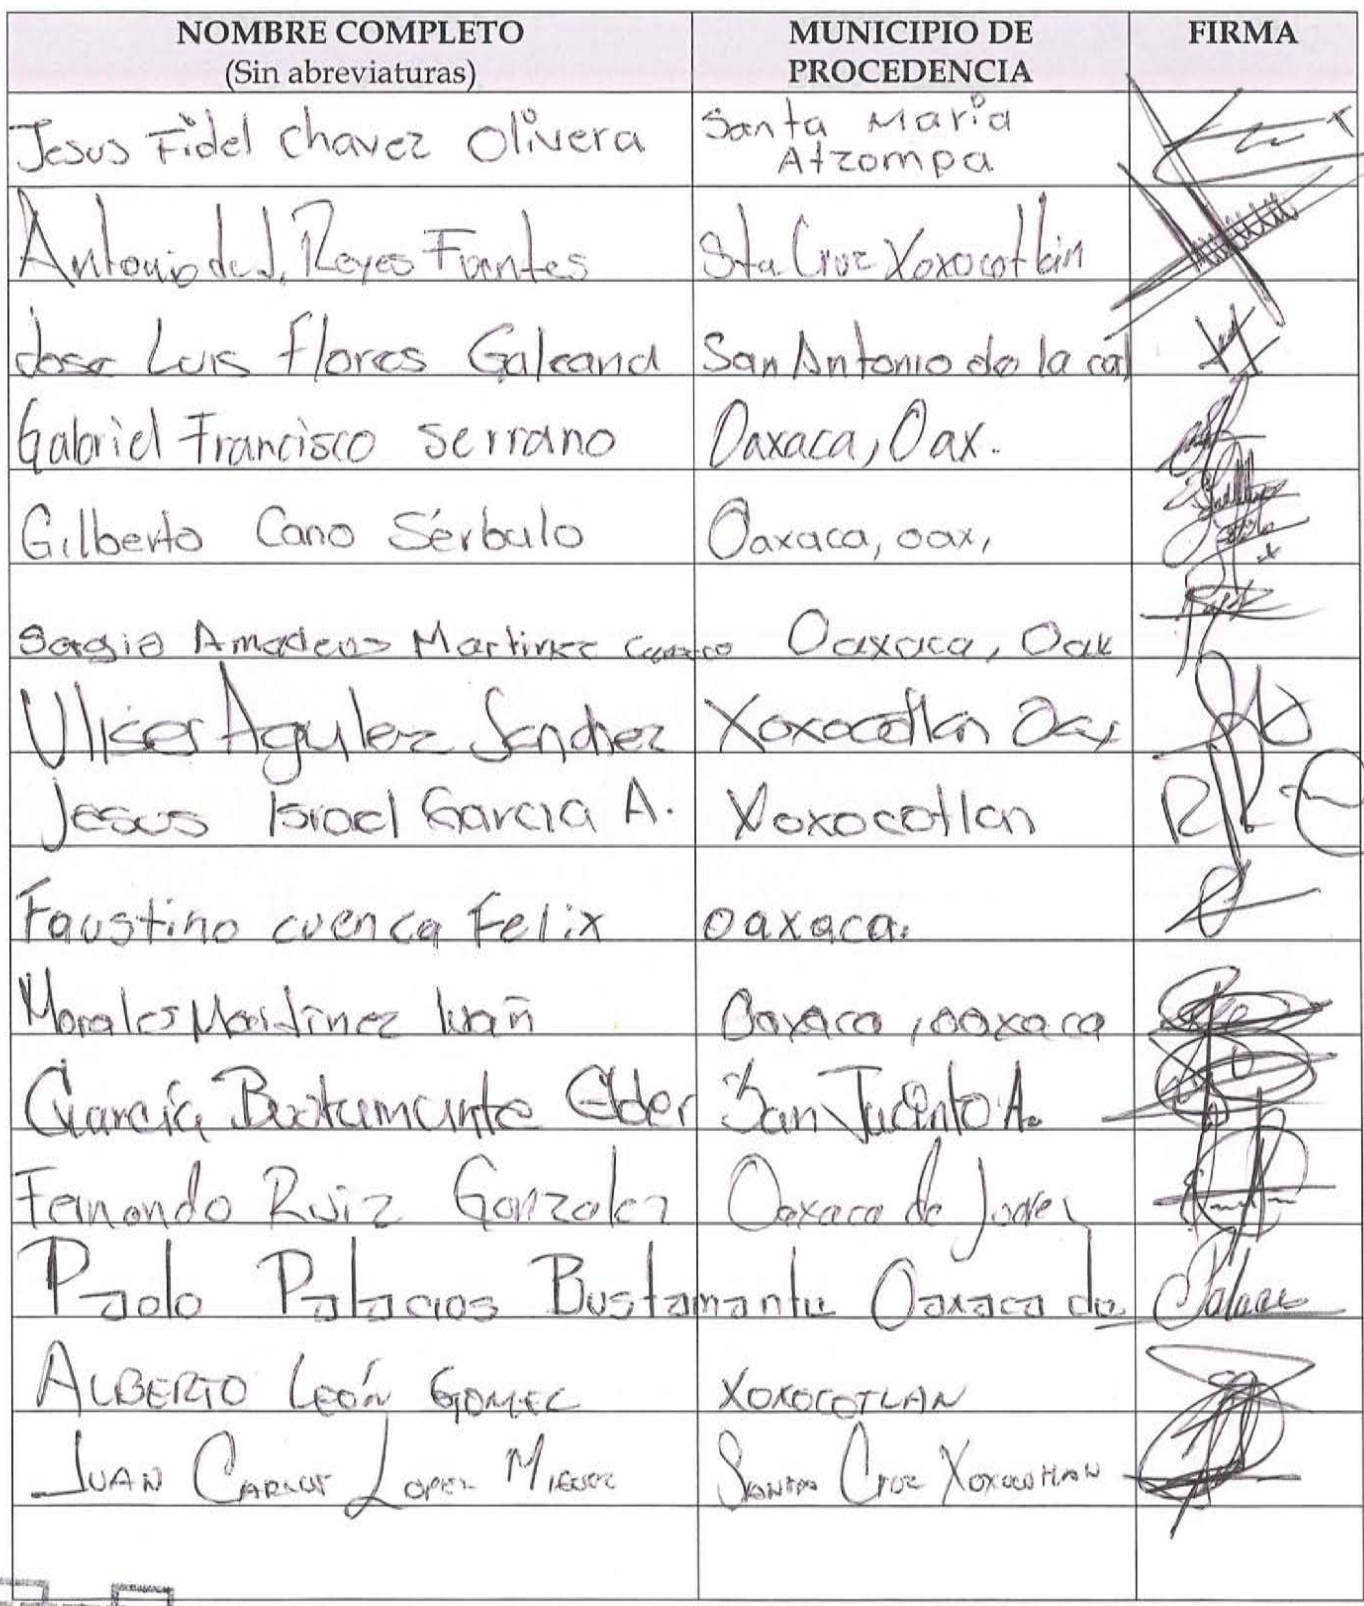 NOMBRE COMPLETO
(Sin abreviaturas)
MUNICIPIO DE
PROCEDENCIA
FIRMA
Jesus Fidel Chavez Olivera
Santa Maria
Atzompa
Antonio de J. Reyes Fuentes
Sta Cruz Xoxocotlan
Jose Luis flores Galeana
San Antonio de la cal
Gabriel Francisco Serrano
Oaxaca, Oax.
Gilberto Cano Sérbulo
Oaxaca, oax,
Sergio Amadeus Martinez
Oaxaca, Oax
Ulises Agulez Sanchez
Xoxocotlan Oax
Jesus Israel Garcia A.
Xoxocotlan
Faustino cuenca Felix
oaxaca.
Morales Martinez Ivañ
Oaxaca, oaxaca
García Bustamante Elder
San Jacinto A.
Fernando Ruiz Gonzalez
Oaxaca de Juarez
Paolo Palacios Bustamante
Oaxaca de
ALBERTO LEÓN GOMEZ
XOXOCOTLAN
JUAN CARLOS LOPEZ MIGUEL
SANTA Cruz XOXOCOTLAN